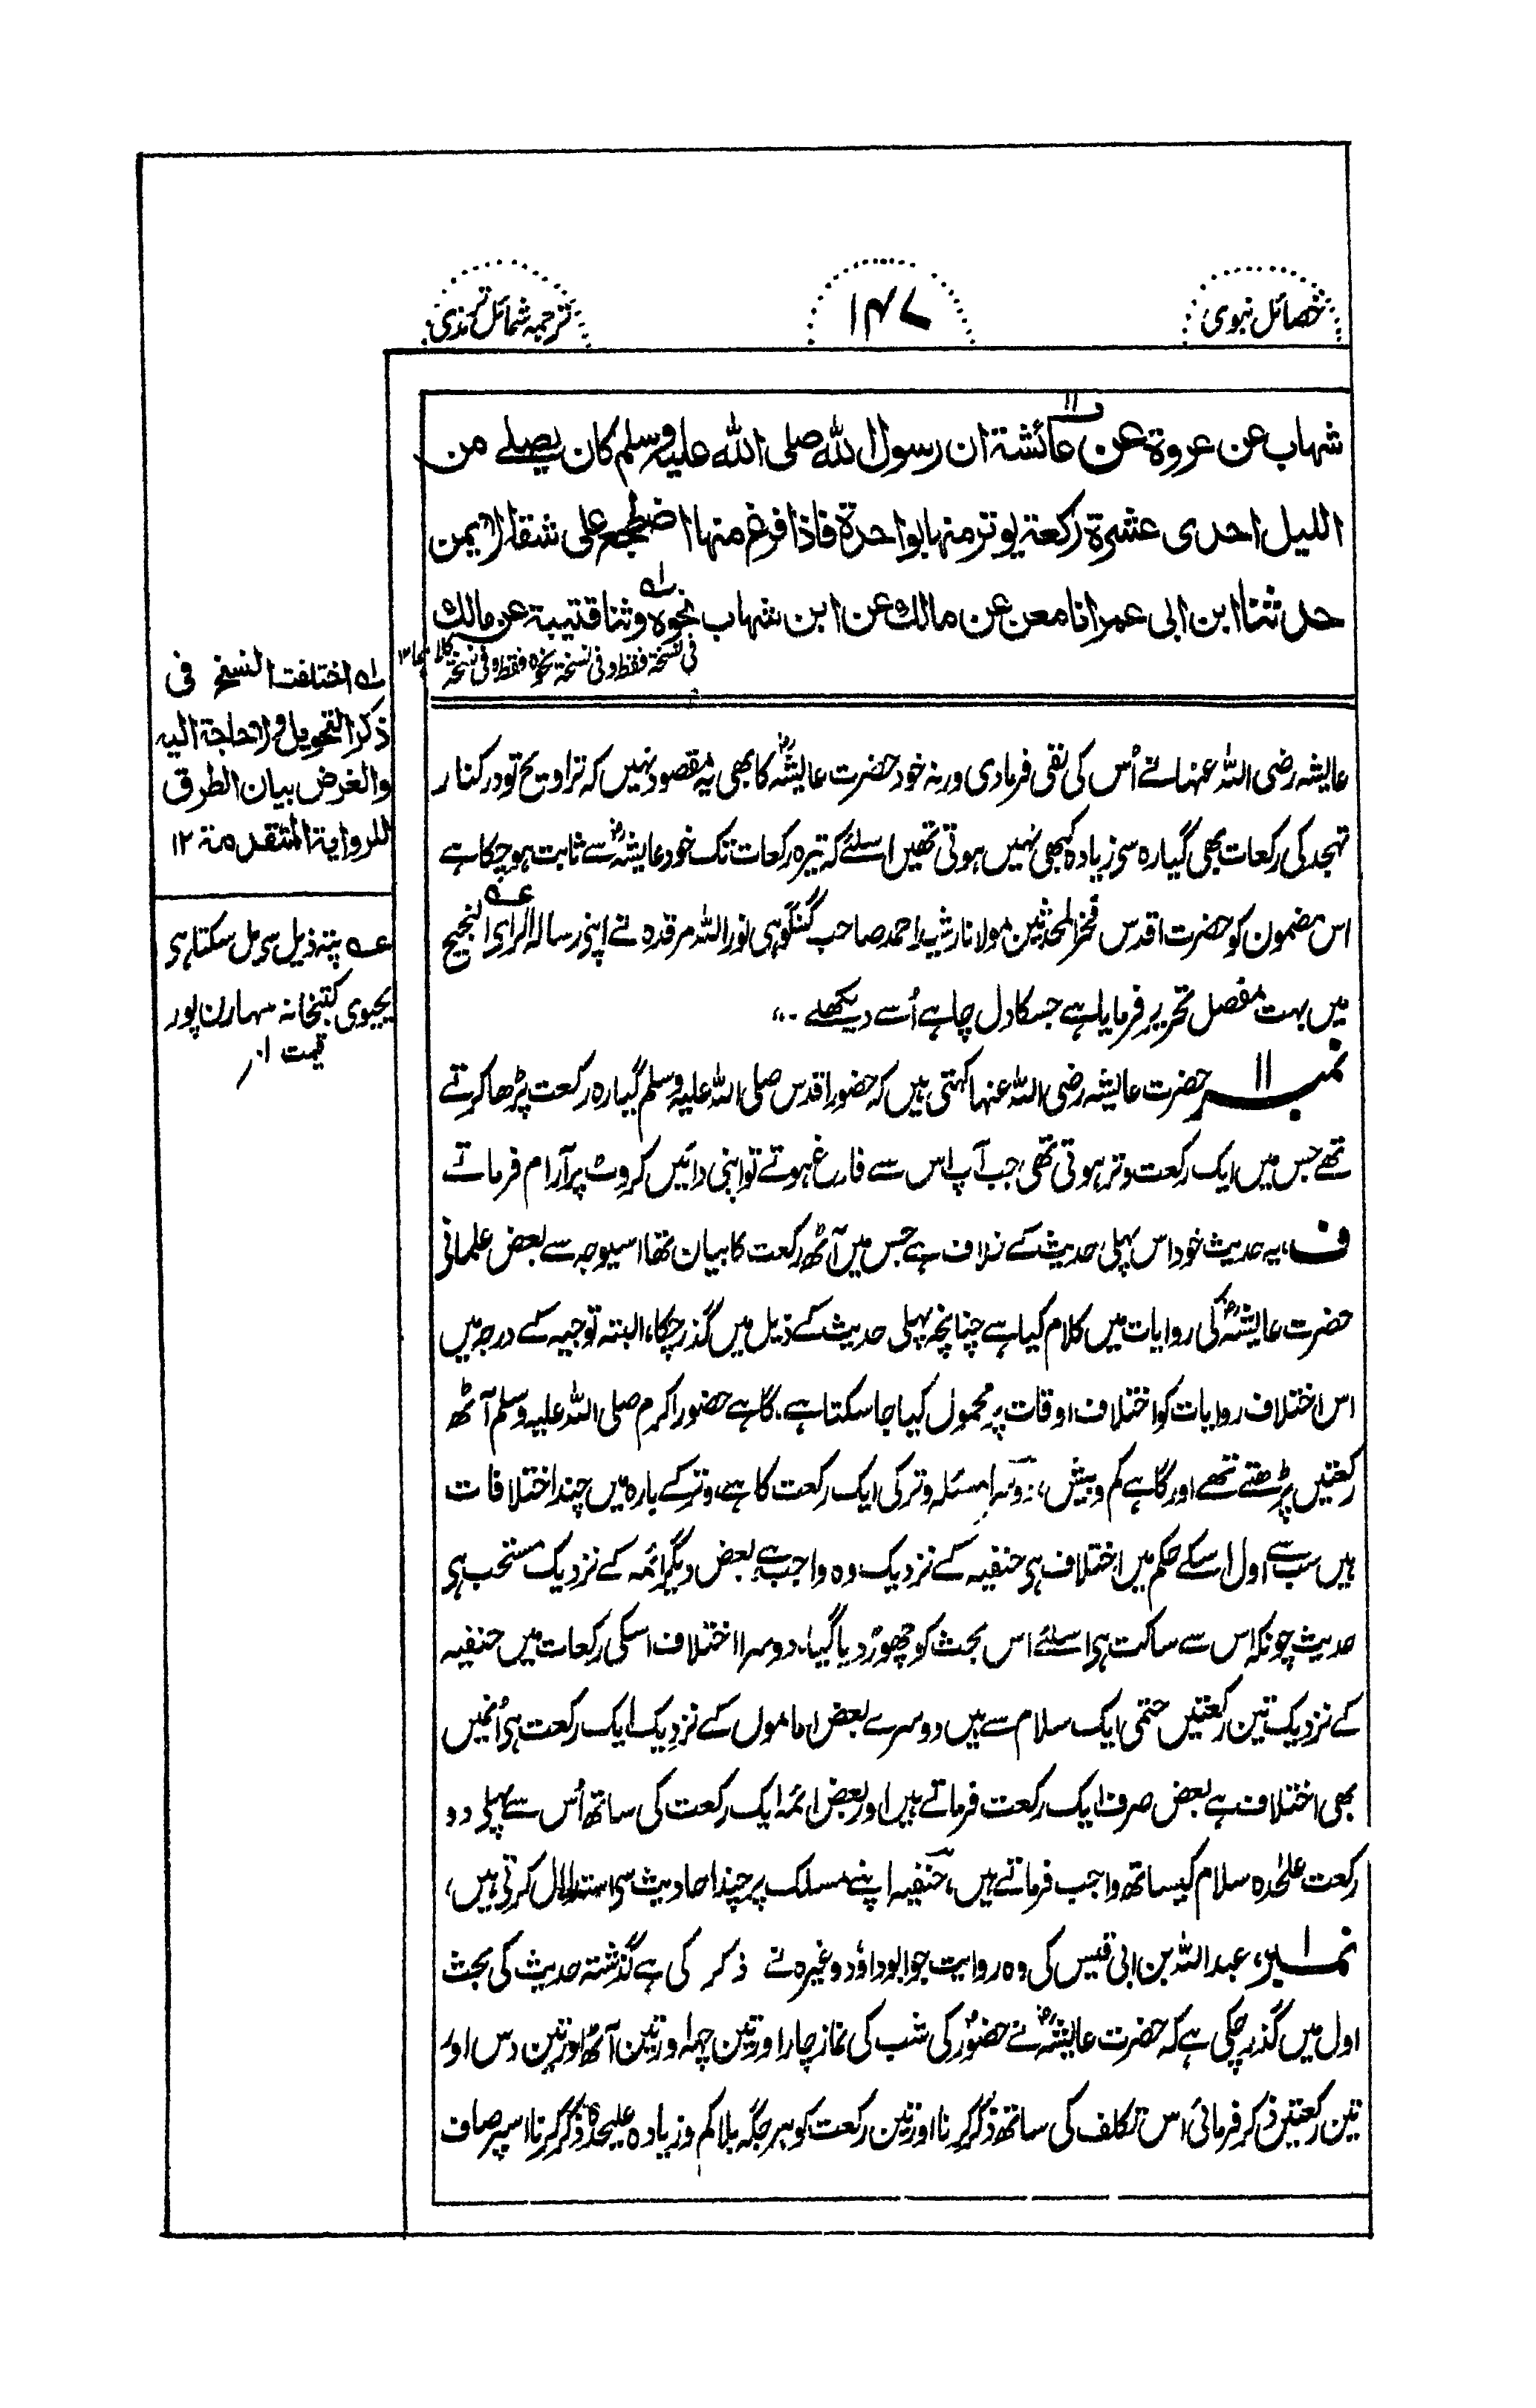 خصائل نبوی
۱۴۷
ترجمہ شمائل ترمذی
شہاب عن عروۃ عن عائشۃ ان رسول اللہ صلی اللہ علیہ وسلم کان یصلے من
اللیل احدی عشرۃ رکعۃ یوتر منہا بواحدۃ فاذا فرغ منہا اضطجع علی شقہ الایمن
حدثنا ابن ابی عمر انا معن عن مالک عن ابن شہاب نحوہ وثنا قتیبۃ عن مالک
فی نسخۃ فقط وفی نسخۃ نحوہ فقط وفی نسخۃ کلاہما ۱۲
عایشہ رضی اللہ عنہا نے اُس کی نفی فرما دی ورنہ خود حضرت عایشہؓ کا بھی یہ مقصود نہیں کہ تراویح تو درکنار
تہجد کی رکعات بھی گیارہ سی زیادہ کبھی نہیں ہوتی تھیں اسلئے کہ تیرہ رکعات تک خود عایشہؓ سے ثابت ہو چکا ہے
اس مضمون کو حضرت اقدس فخر المحدثین مولانا رشید احمد صاحب گنگوہی نور اللہ مرقدہ نے اپنی رسالہ الرای النجیح
میں بہت مفصل تحریر فرمایا ہے جسکا دل چاہے اُسے دیکھلے ۔،،
نمبر ۱۱ حضرت عایشہ رضی اللہ عنہا کہتی ہیں کہ حضور اقدس صلی اللہ علیہ وسلم گیارہ رکعت پڑھا کرتے
تھے جس میں ایک رکعت وتر ہوتی تھی، جب آپ اس سے فارغ ہوتے تو اپنی دائیں کروٹ پر آرام فرماتے
ف، یہ حدیث خود اس پہلی حدیث کے خلاف ہے جس میں آٹھ رکعت کا بیان تھا اسیوجہ سے بعض علمانی
حضرت عایشہؓ کی روایات میں کلام کیا ہے چنانچہ پہلی حدیث کے ذیل میں گذر چکا، البتہ توجیہ کے درجہ میں
اس اختلاف روایات کو اختلاف اوقات پر محمول کیا جا سکتا ہے۔ گاہے حضور اکرم صلی اللہ علیہ وسلم آٹھ
رکعتیں پڑھتے تھے اور گاہے کم وبیش، دوسرا مسئلہ وتر کی ایک رکعت کا ہے، وتر کے بارہ میں چند اختلافات
ہیں سب سے اول اسکے حکم میں اختلاف ہی حنفیہ کے نزدیک وہ واجب ہے، بعض دیگر ائمہ کے نزدیک مستحب ہی
حدیث چونکہ اس سے ساکت ہی اسلئے اس بحث کو چھوڑ دیا گیا، دوسرا اختلاف اسکی رکعات میں حنفیہ
کے نزدیک تین رکعتیں حتمی ایک سلام سے ہیں دوسرے بعض اماموں کے نزدیک ایک رکعت ہی اُنمیں
بھی اختلاف ہے بعض صرف ایک رکعت فرماتے ہیں اور بعض ائمہ ایک رکعت کی ساتھ اُس سے پہلی دو
رکعت علٰحدہ سلام کیساتھ واجب فرماتے ہیں، حنفیہ اپنے مسلک پر چند احادیث سی استدلال کرتی ہیں،
نمبر ۱، عبد اللہ بن ابی قیس کی وہ روایت جو ابو داؤد وغیرہ نے ذکر کی ہے گذشتہ حدیث کی بحث
اول میں گذر چکی ہے کہ حضرت عایشہؓ نے حضورؐ کی شب کی نماز چار اور تین چھہ اور تین آٹھ اور تین دس اور
تین رکعتیں ذکر فرمائی اس تکلف کی ساتھ ذکر کرنا اور تین رکعت کو ہر جگہ بلا کم و زیادہ علیحدہ ذکر کرنا اسپر صاف
لہ اختلفت النسخ فی
ذکر التحویل ولا حاجۃ الیہ
والغرض بیان الطرق
للروایۃ المتقدمۃ ۱۲
عہ پتہ ذیل سی مل سکتا ہی
یحیوی کتبخانہ سہارن پور
قیمت ۱ر